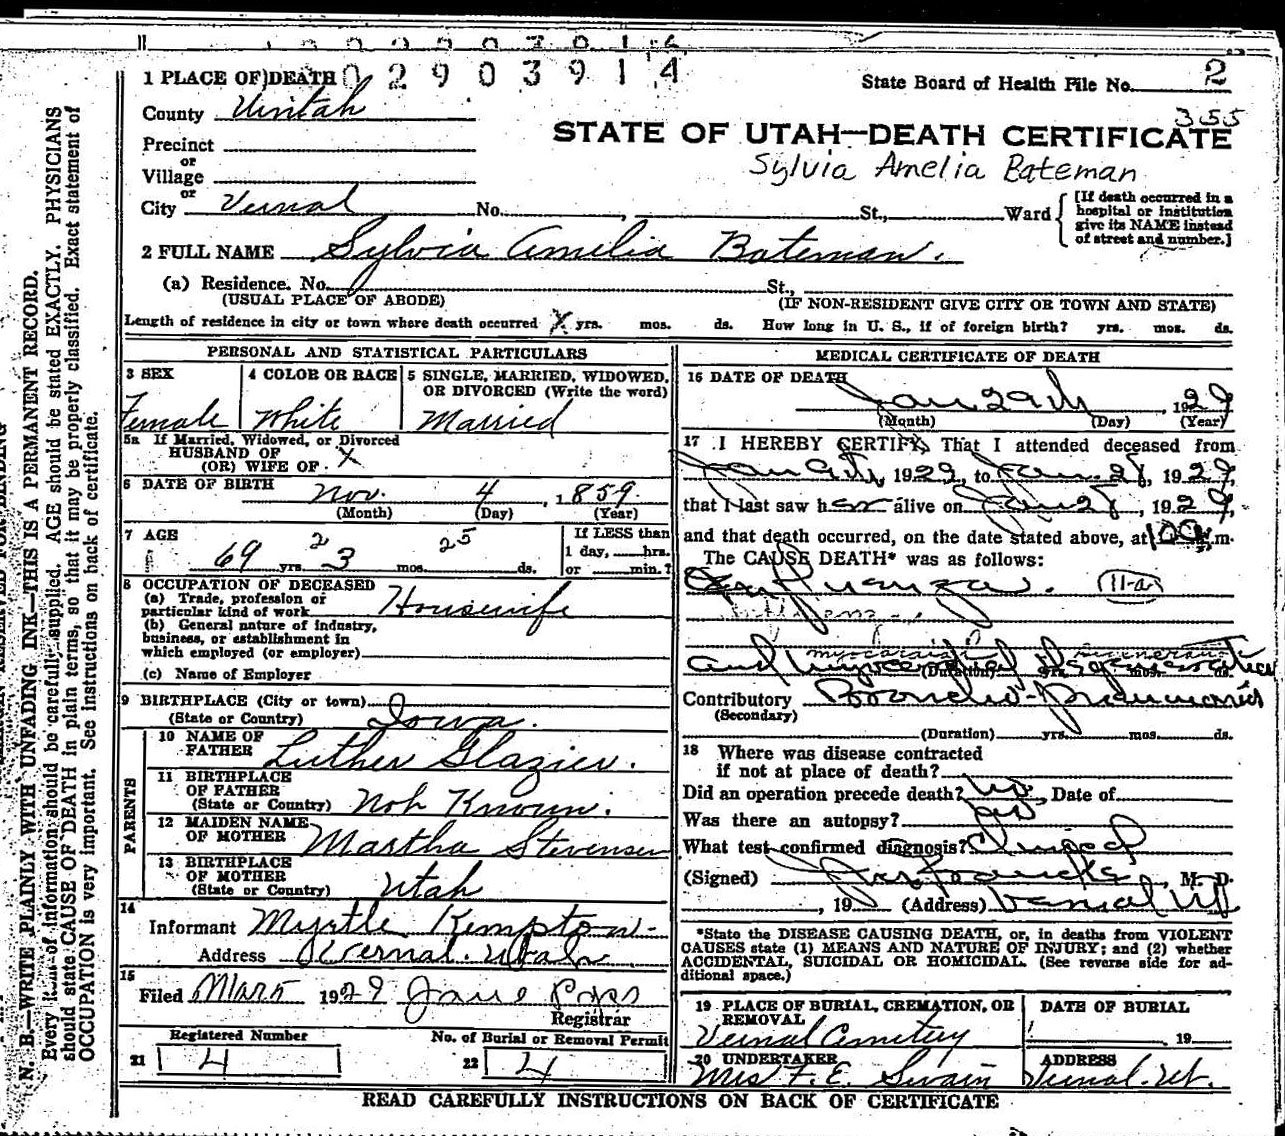 0 2 9 0 3 9 1 4
State Board of Health File No. 2
355
1 PLACE OF DEATH
County Uintah
STATE OF UTAH—DEATH CERTIFICATE
Precinct
or
Village
Sylvia Amelia Bateman
or
City Vernal No. , St., Ward
[If death occurred in a
hospital or institution
give its NAME instead
of street and number.]
2 FULL NAME Sylvia Amelia Bateman.
(a) Residence. No. St.,
(USUAL PLACE OF ABODE) (IF NON-RESIDENT GIVE CITY OR TOWN AND STATE)
Length of residence in city or town where death occurred X yrs. mos. ds. How long in U. S., if of foreign birth? yrs. mos. ds.
PERSONAL AND STATISTICAL PARTICULARS
3 SEX
Female
4 COLOR OR RACE
White
5 SINGLE, MARRIED, WIDOWED,
OR DIVORCED (Write the word)
Married
5a If Married, Widowed, or Divorced
HUSBAND OF
(OR) WIFE OF X
6 DATE OF BIRTH Nov. 4, 1859.
(Month) (Day) (Year)
7 AGE
69 yrs. 2 3 mos. 25 ds.
If LESS than
1 day, hrs.
or min.?
8 OCCUPATION OF DECEASED
(a) Trade, profession or
particular kind of work Housewife
(b) General nature of industry,
business, or establishment in
which employed (or employer)
(c) Name of Employer
9 BIRTHPLACE (City or town)
(State or Country) Iowa.
PARENTS
10 NAME OF
FATHER Luther Glazier.
11 BIRTHPLACE
OF FATHER
(State or Country) Not Known.
12 MAIDEN NAME
OF MOTHER Martha Stevensen
13 BIRTHPLACE
OF MOTHER
(State or Country) Utah
14
Informant Myrtle Kempton
Address Vernal. Utah
15
Filed Mar 5 1929 Jane
Registrar
Registered Number
21 4
No. of Burial or Removal Permit
22 4
MEDICAL CERTIFICATE OF DEATH
16 DATE OF DEATH
Jan 29th, 1929
(Month) (Day) (Year)
17 I HEREBY CERTIFY, That I attended deceased from
Jan 9th, 1929, to Jan 28, 1929,
that I last saw her alive on Jan 28, 1929,
and that death occurred, on the date stated above, at m.
The CAUSE DEATH* was as follows:
Influenza. 11-a
myocardial degeneration
and Myocardial Degeneration
(Duration) yrs. mos. ds.
Contributory Broncho-pneumonia
(Secondary)
(Duration) yrs. mos. ds.
18 Where was disease contracted
if not at place of death?
Did an operation precede death? no, Date of
Was there an autopsy? no
What test confirmed diagnosis? Clinical
(Signed) M. D.
, 19 (Address) Vernal Ut
*State the DISEASE CAUSING DEATH, or, in deaths from VIOLENT
CAUSES state (1) MEANS AND NATURE OF INJURY; and (2) whether
ACCIDENTAL, SUICIDAL OR HOMICIDAL. (See reverse side for ad-
ditional space.)
19 PLACE OF BURIAL, CREMATION, OR
REMOVAL
Vernal Cemetery
DATE OF BURIAL
, 19
20 UNDERTAKER
Mrs F. E. Swain
ADDRESS
Vernal. Ut.
READ CAREFULLY INSTRUCTIONS ON BACK OF CERTIFICATE
N. B.—WRITE PLAINLY WITH UNFADING INK—THIS IS A PERMANENT RECORD.
Every item of information should be carefully supplied. AGE should be stated EXACTLY. PHYSICIANS
should state CAUSE OF DEATH in plain terms, so that it may be properly classified. Exact statement of
OCCUPATION is very important. See instructions on back of certificate.